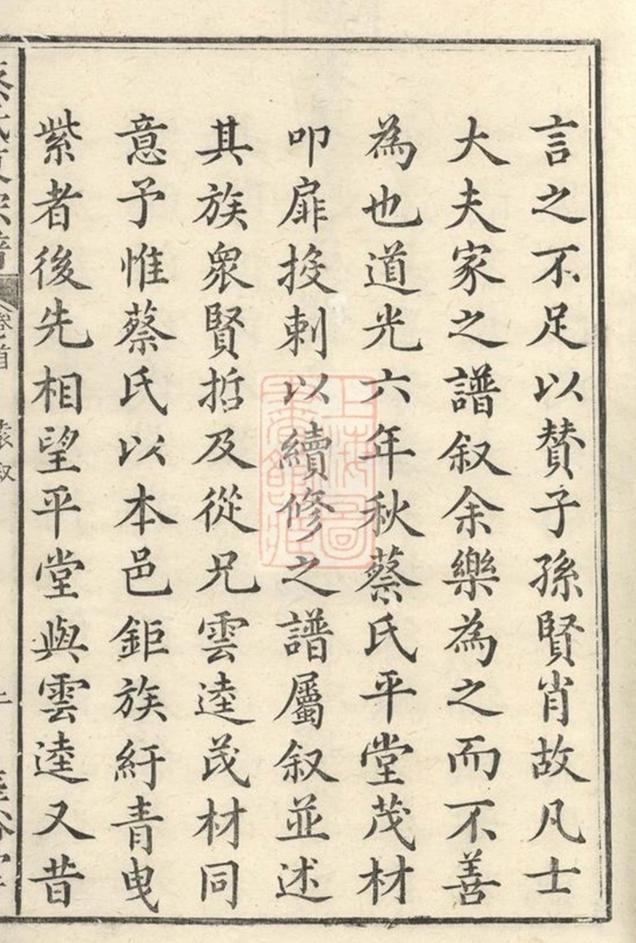 言之不足以贊子孫賢肖故凡士
大夫家之譜叙余樂為之而不善
為也道光六年秋蔡氏平堂茂材
叩扉投刺以續修之譜屬叙並述
其族衆賢哲及從兄雲逵茂材同
意予惟蔡氏以本邑鉅族紆青曳
紫者後先相望平堂與雲逵又昔
卷首
上海圖書館藏